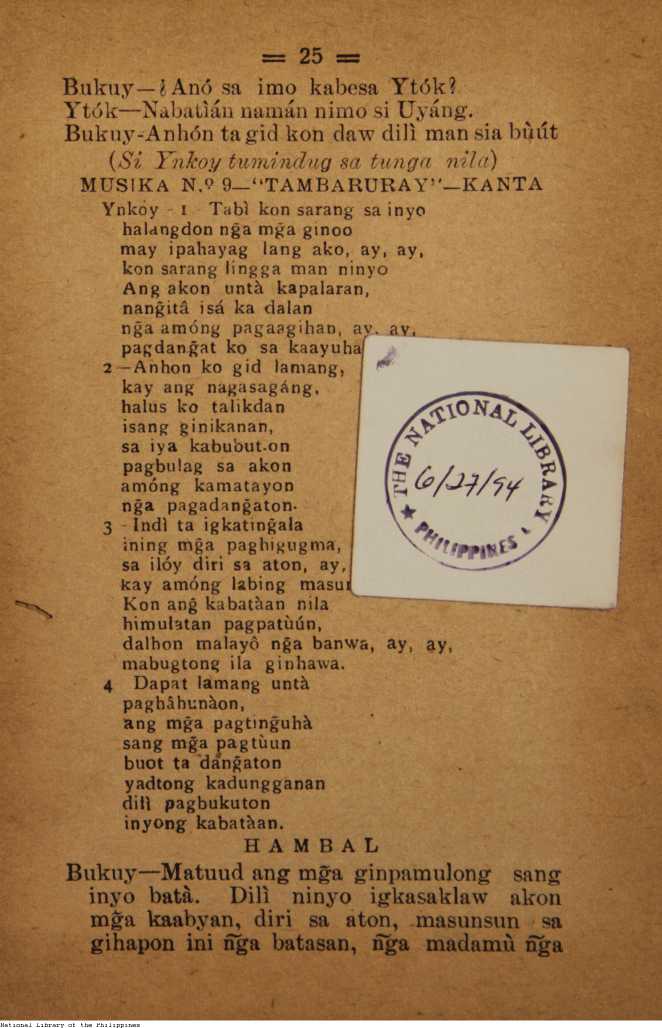 = 25 =
Bukuy—¿Anó sa imo kabesa Ytók?
Ytók—Nabatìán namán nimo si Uyáng.
Bukuy-Anhón ta gid kon daw dilì man sia bùút
(Si Ynkoy tumindug sa tunga nila)
MUSIKA N.º 9—"TAMBARURAY"—KANTA
Ynkoy - 1 - Tabì kon sarang sa inyo
halangdon ng̃a mg̃a ginoo
may ipahayag lang ako, ay, ay,
kon sarang lingga man ninyo
Ang akon untà kapalaran,
nang̃itâ isá ka dalan
ng̃a amóng pagaagihan, ay, ay,
pagdang̃at ko sa kaayuha
2—Anhon ko gid lamang,
kay ang nagasagáng,
halus ko talikdan
isang ginikanan,
sa iya kabubut-on
pagbulag sa akon
amóng kamatayon
ng̃a pagadang̃aton.
3 - Indì ta igkating̃ala
ining mg̃a paghigugma,
sa ilóy diri sa aton, ay,
kay amóng labing
Kon ang̃ kabatàan nila
himulatan pagpatùún,
dalhon malayô ng̃a banwa, ay, ay,
mabugtong ila ginhawa.
4 Dapat lamang untà
paghâhunàon,
ang mg̃a pagting̃uhà
sang mg̃a pagtùun
buot ta dang̃aton
yadtong kadungganan
dilì pagbukuton
inyong kabatàan.
HAMBAL
Bukuy—Matuud ang mg̃a ginpamulong sang
inyo batà. Dilì ninyo igkasaklaw akon
mg̃a kaabyan, diri sa aton, masunsun sa
gihapon ini ng̃a batasan, ng̃a madamù ng̃a
THE NATIONAL LIBRARY
6/27/94
★ PHILIPPINES
National Library of the Philippines